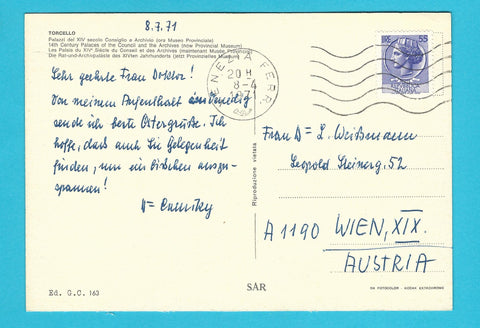 8.7.71
TORCELLO
Palazzi del XIV secolo Consiglio e Archivio (ora Museo Provinciale)
14th Century Palaces of the Council and the Archives (now Provincial Museum)
Les Palais du XIV° Siècle du Conseil et des Archives (maintenant Musée Provincial)
Die Rat-und-Archivpaläste des XIVten Jahrhunderts (jetzt Provinzielles Museum)
Sehr geehrte Frau Doktor!
Von meinem Aufenthalt in Venedig
sende ich beste Ostergrüße. Ich
hoffe, daß auch Sie Gelegenheit
finden, um ein bißchen auszu-
spannen!
VENEZIA FERR.
20 H
8-4
1971
55
Frau Dr L. Weißmann
Leopold Steinerg. 52
A 1190 WIEN, XIX.
AUSTRIA
Riproduzione vietata
Ed. G.C. 163
SAR
DA FOTOCOLOR - KODAK EKTACHROME